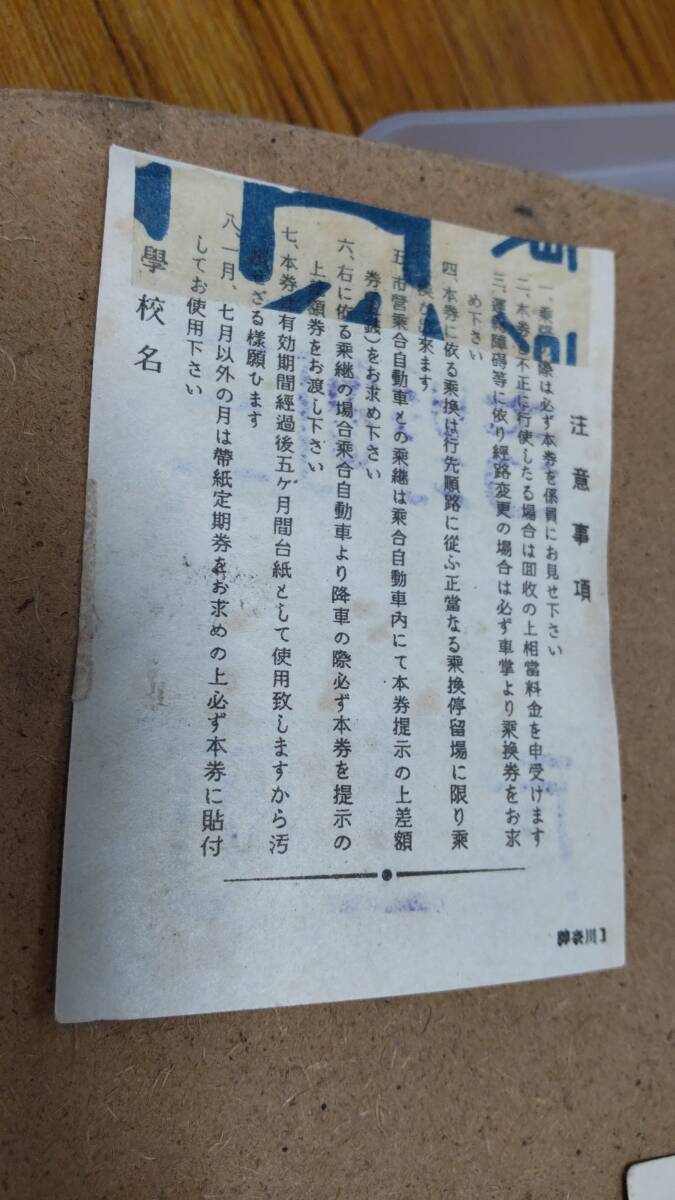 注意事項
一、乗降の際は必ず本券を係員にお見せ下さい
二、本券を不正に行使したる場合は回收の上相當料金を申受けます
三、運転障碍等に依り經路変更の場合は必ず車掌より乗換券をお求
め下さい
四、本券に依る乗換は行先順路に從ふ正當なる乗換停留場に限り乗
換が出來ます
五、市營乗合自動車との乗継は乗合自動車內にて本券提示の上差額
券 をお求め下さい
六、右に依る乗継の場合乗合自動車より降車の際必ず本券を提示の
上差額券をお渡し下さい
七、本券は有効期間經過後五ヶ月間台紙として使用致しますから汚
せざる樣願ひます
八、一月、七月以外の月は帶紙定期券をお求めの上必ず本券に貼付
してお使用下さい
學校名
神奈川